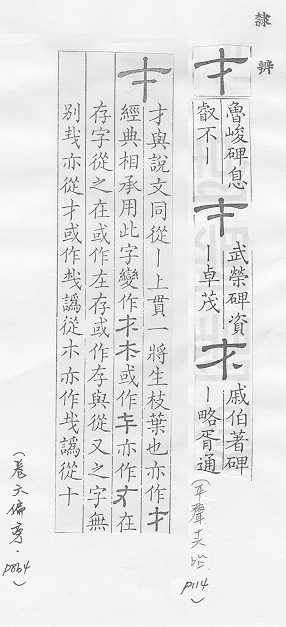 隸辨
才魯峻碑息
叡不丨才武榮碑資
丨卓茂才戚伯著碑
丨略胥通
(平聲十六咍
P114)
才才與說文同從丨上貫一將生枝葉也亦作才
經典相承用此字變作才木或作𠂇亦作才在
存字從之在或作左存或作存與從又之字無
別㦲亦從才或作㦲譌從木亦作㦲譌從十
(卷六偏旁.
P864)